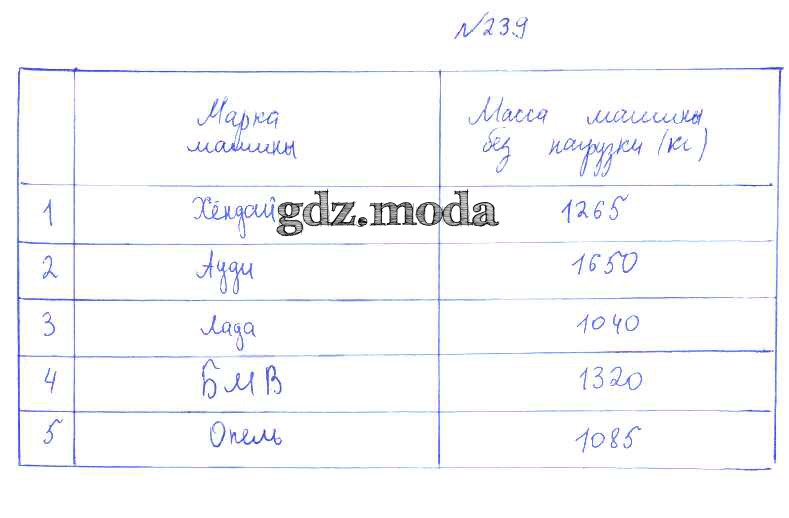 №239
Марка машины
Масса машины без нагрузки (кг)
1 Хёндай 1265
gdz.moda
2 Ауди 1650
3 Лада 1040
4 БМВ 1320
5 Опель 1085